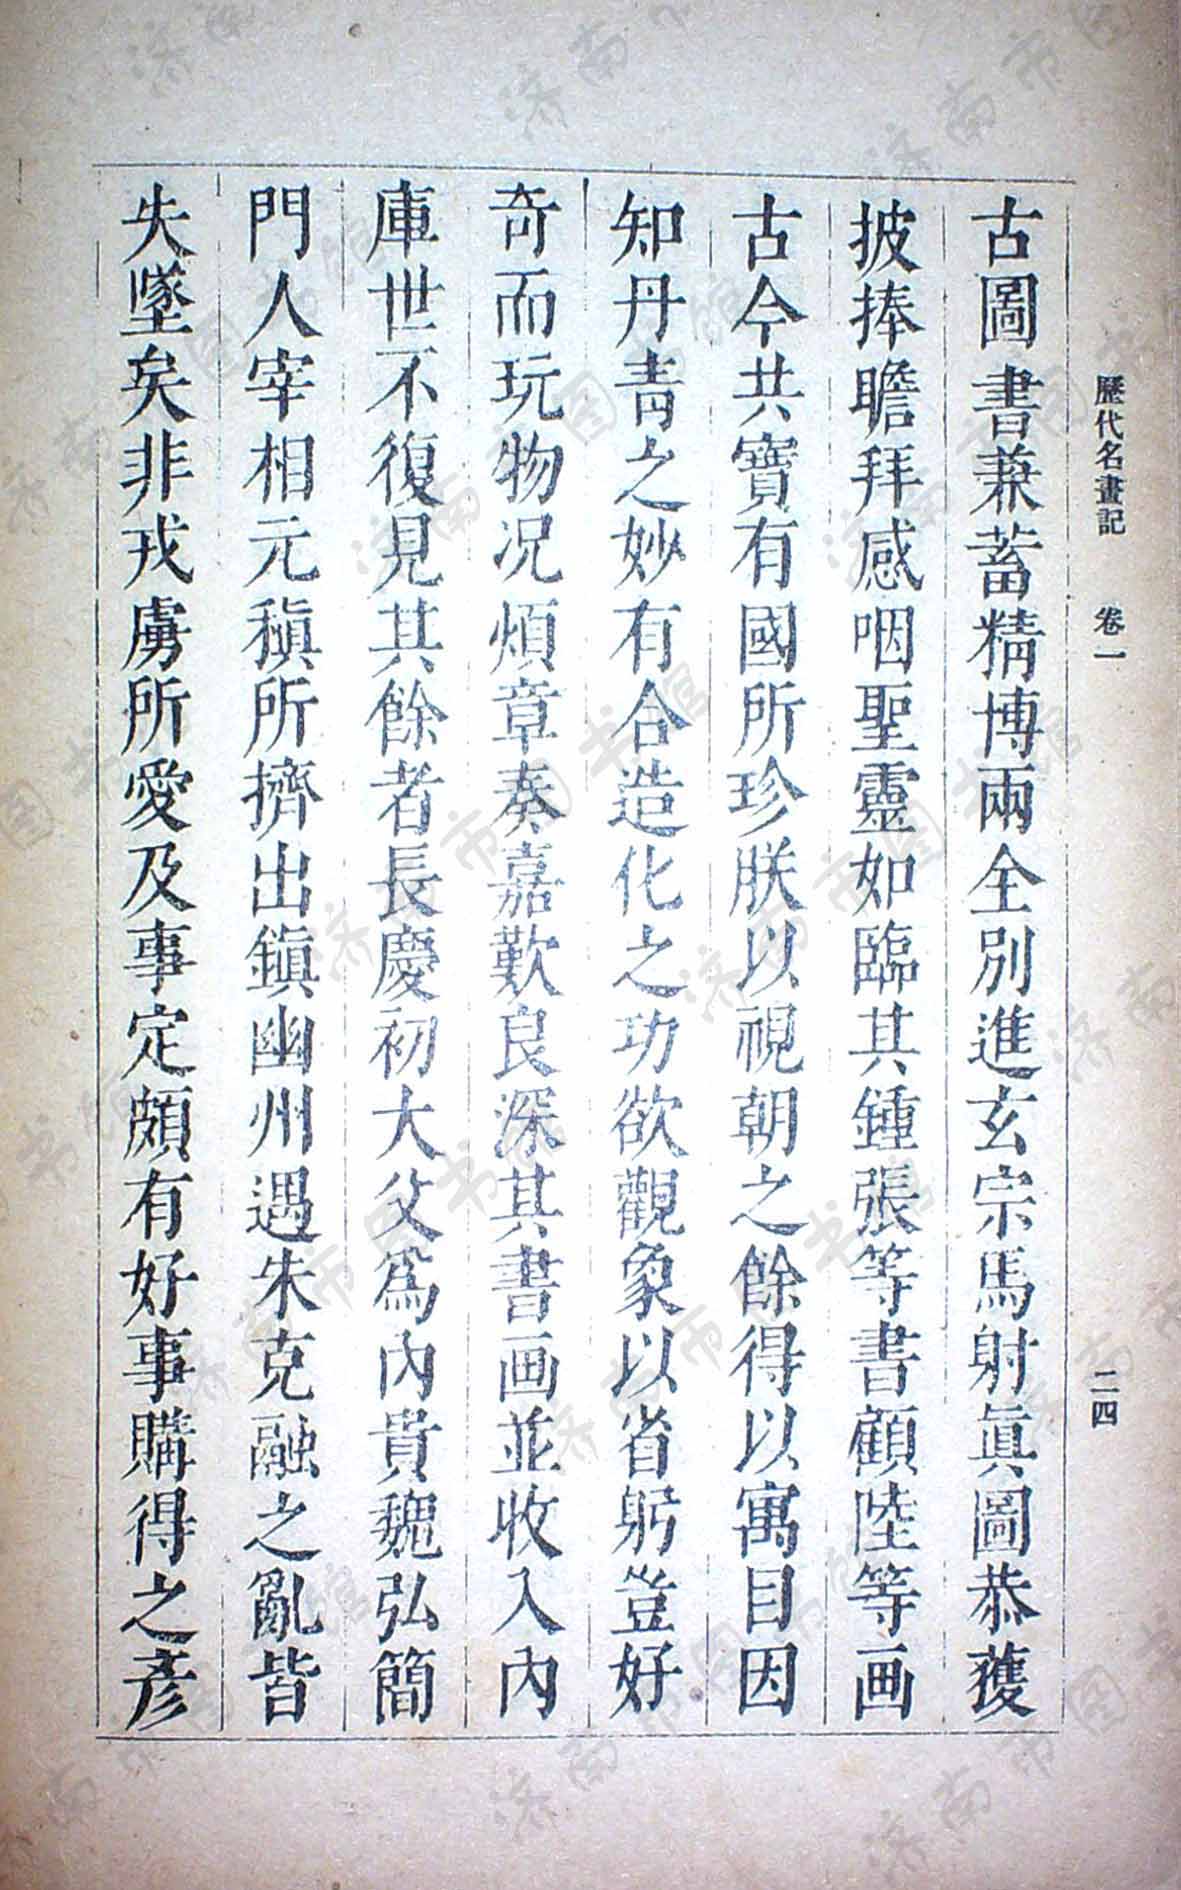 歷代名畫記　卷一　二四
古圖書兼蓄精博兩全別進玄宗馬射眞圖恭獲
披捧瞻拜感咽聖靈如臨其鍾張等書顧陸等画
古今共寶有國所珍朕以視朝之餘得以寓目因
知丹靑之妙有合造化之功欲觀象以省躬豈好
奇而玩物况煩章奏嘉歎良深其書画並收入內
庫世不復見其餘者長慶初大父爲內貴魏弘簡
門人宰相元稹所擠出鎭幽州遇朱克融之亂皆
失墜矣非戎虜所愛及事定頗有好事購得之彥
济南市图书馆